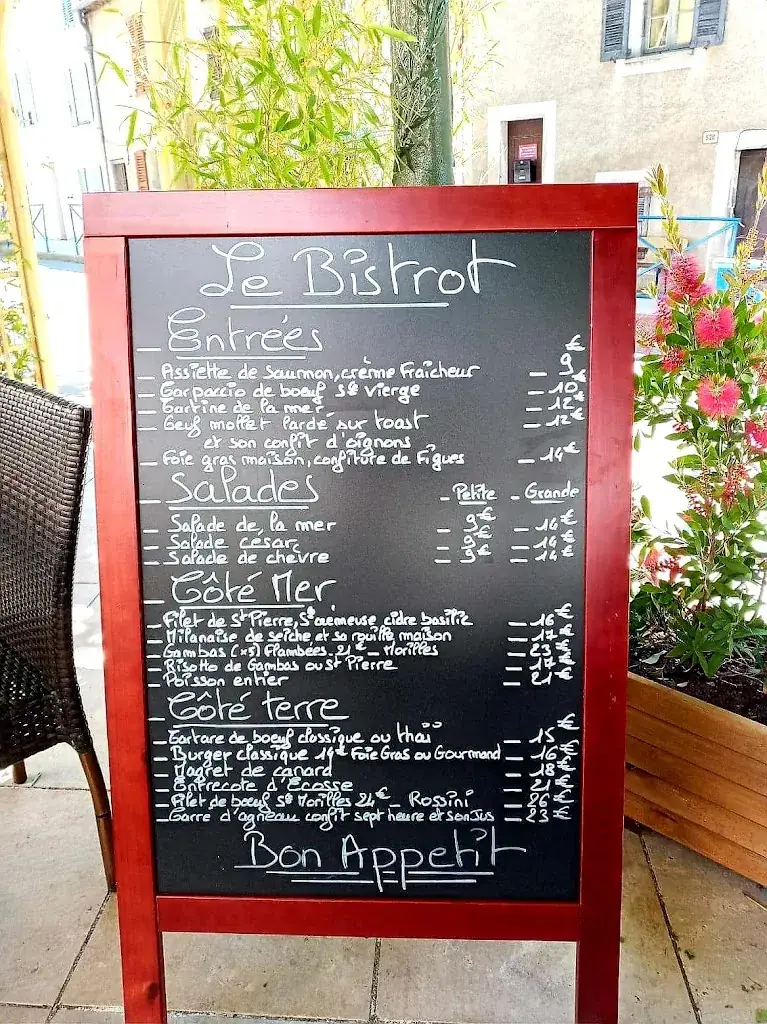 Le Bistrot
Entrées €
_ Assiette de Saumon, crème Fraicheur _ 9€
_ Carpaccio de boeuf Sce Vierge _ 10€
_ Tartine de la mer _ 12€
_ Oeuf mollet lardé sur toast _ 12€
et son confit d'oignons
_ Foie gras maison, confiture de Figues _ 14€
_ Salades _ Petite _ Grande
_ Salade de la mer _ 9€ _ 14€
_ Salade césar _ 9€ _ 14€
_ Salade de chèvre _ 9€ _ 14€
_ Côté Mer
_ Filet de St Pierre, Sce crèmeuse, cidre basilic _ 16€
_ Milanaise de seiche, et sa rouille maison _ 17€
_ Gambas (x5) Flambées 21€ _ Morilles _ 23€
_ Risotto de Gambas ou St Pierre _ 17€
_ Poisson entier _ 21€
_ Côté terre
_ Tartare de boeuf classique ou thaï _ 15€
_ Burger classique 14€ Foie Gras ou Gourmand _ 16€
_ Magret de canard _ 18€
_ Entrecote d'Ecosse _ 21€
_ Filet de boeuf Sce Morilles 24€ _ Rossini _ 26€
_ Carre d'agneau confit sept heure et son Jus _ 23€
Bon Appetit